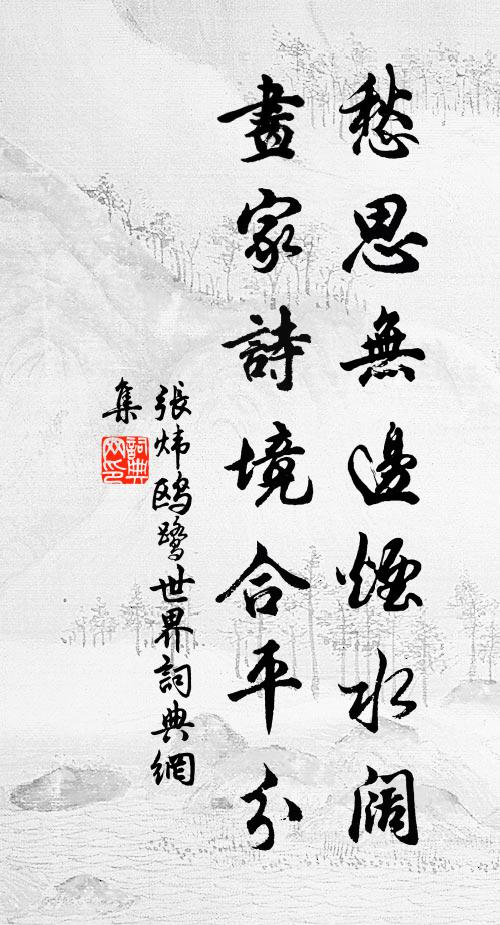 愁思無邊煙水闊
畫家詩境合平分
張炜鸥鹭世界詞典網
集
詞典
网印